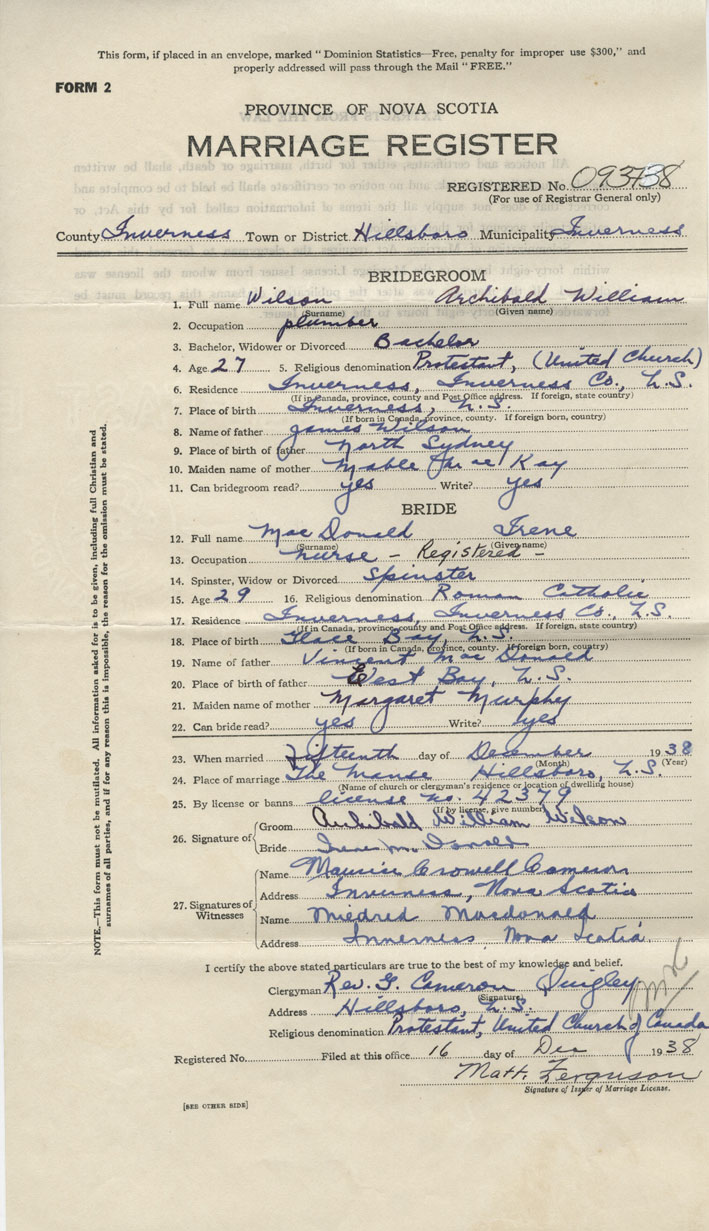 This form, if placed in an envelope, marked "Dominion Statistics—Free, penalty for improper use $300," and
properly addressed will pass through the Mail "FREE."
FORM 2
PROVINCE OF NOVA SCOTIA
MARRIAGE REGISTER
REGISTERED No. 093738
(For use of Registrar General only)
County Inverness Town or District Hillsboro Municipality Inverness
BRIDEGROOM
1. Full name Wilson Archibald William
(Surname) (Given name)
2. Occupation plumber
3. Bachelor, Widower or Divorced Bachelor
4. Age 27 5. Religious denomination Protestant, (United Church)
6. Residence Inverness, Inverness Co., N.S.
(If in Canada, province, county and Post Office address. If foreign, state country)
7. Place of birth Inverness, N.S.
(If born in Canada, province, county. If foreign born, country)
8. Name of father James Wilson
9. Place of birth of father North Sydney
10. Maiden name of mother Mable Kay
11. Can bridegroom read? yes Write? yes
BRIDE
12. Full name MacDonald Irene
(Surname) (Given name)
13. Occupation nurse - Registered -
14. Spinster, Widow or Divorced Spinster
15. Age 29 16. Religious denomination Roman Catholic
17. Residence Inverness, Inverness Co., N.S.
(If in Canada, province, county and Post Office address. If foreign, state country)
18. Place of birth Glace Bay, N.S.
(If born in Canada, province, county. If foreign born, country)
19. Name of father Vincent MacDonald
20. Place of birth of father West Bay, N.S.
21. Maiden name of mother Margaret Murphy
22. Can bride read? yes Write? yes
23. When married Fifteenth day of December 1938
(Month) (Year)
24. Place of marriage The Manse Hillsboro, N.S.
(Name of church or clergyman's residence or location of dwelling house)
25. By license or banns license no. 42379
(If by license, give number)
26. Signature of
Groom Archibald William Wilson
Bride Irene McDonald
27. Signatures of Witnesses
Name Maurice Crowell Cameron
Address Inverness, Nova Scotia
Name Mildred Macdonald
Address Inverness Nova Scotia.
I certify the above stated particulars are true to the best of my knowledge and belief.
Clergyman Rev. G. Cameron Quigley
(Signature)
Address Hillsboro, N.S.
Religious denomination Protestant, United Church of Canada
Registered No. Filed at this office 16 day of Dec 1938
Matt. Ferguson
Signature of Issuer of Marriage License.
[SEE OTHER SIDE]
NOTE.—This form must not be mutilated. All information asked for is to be given, including full Christian and
surnames of all parties, and if for any reason this is impossible, the reason for the omission must be stated.